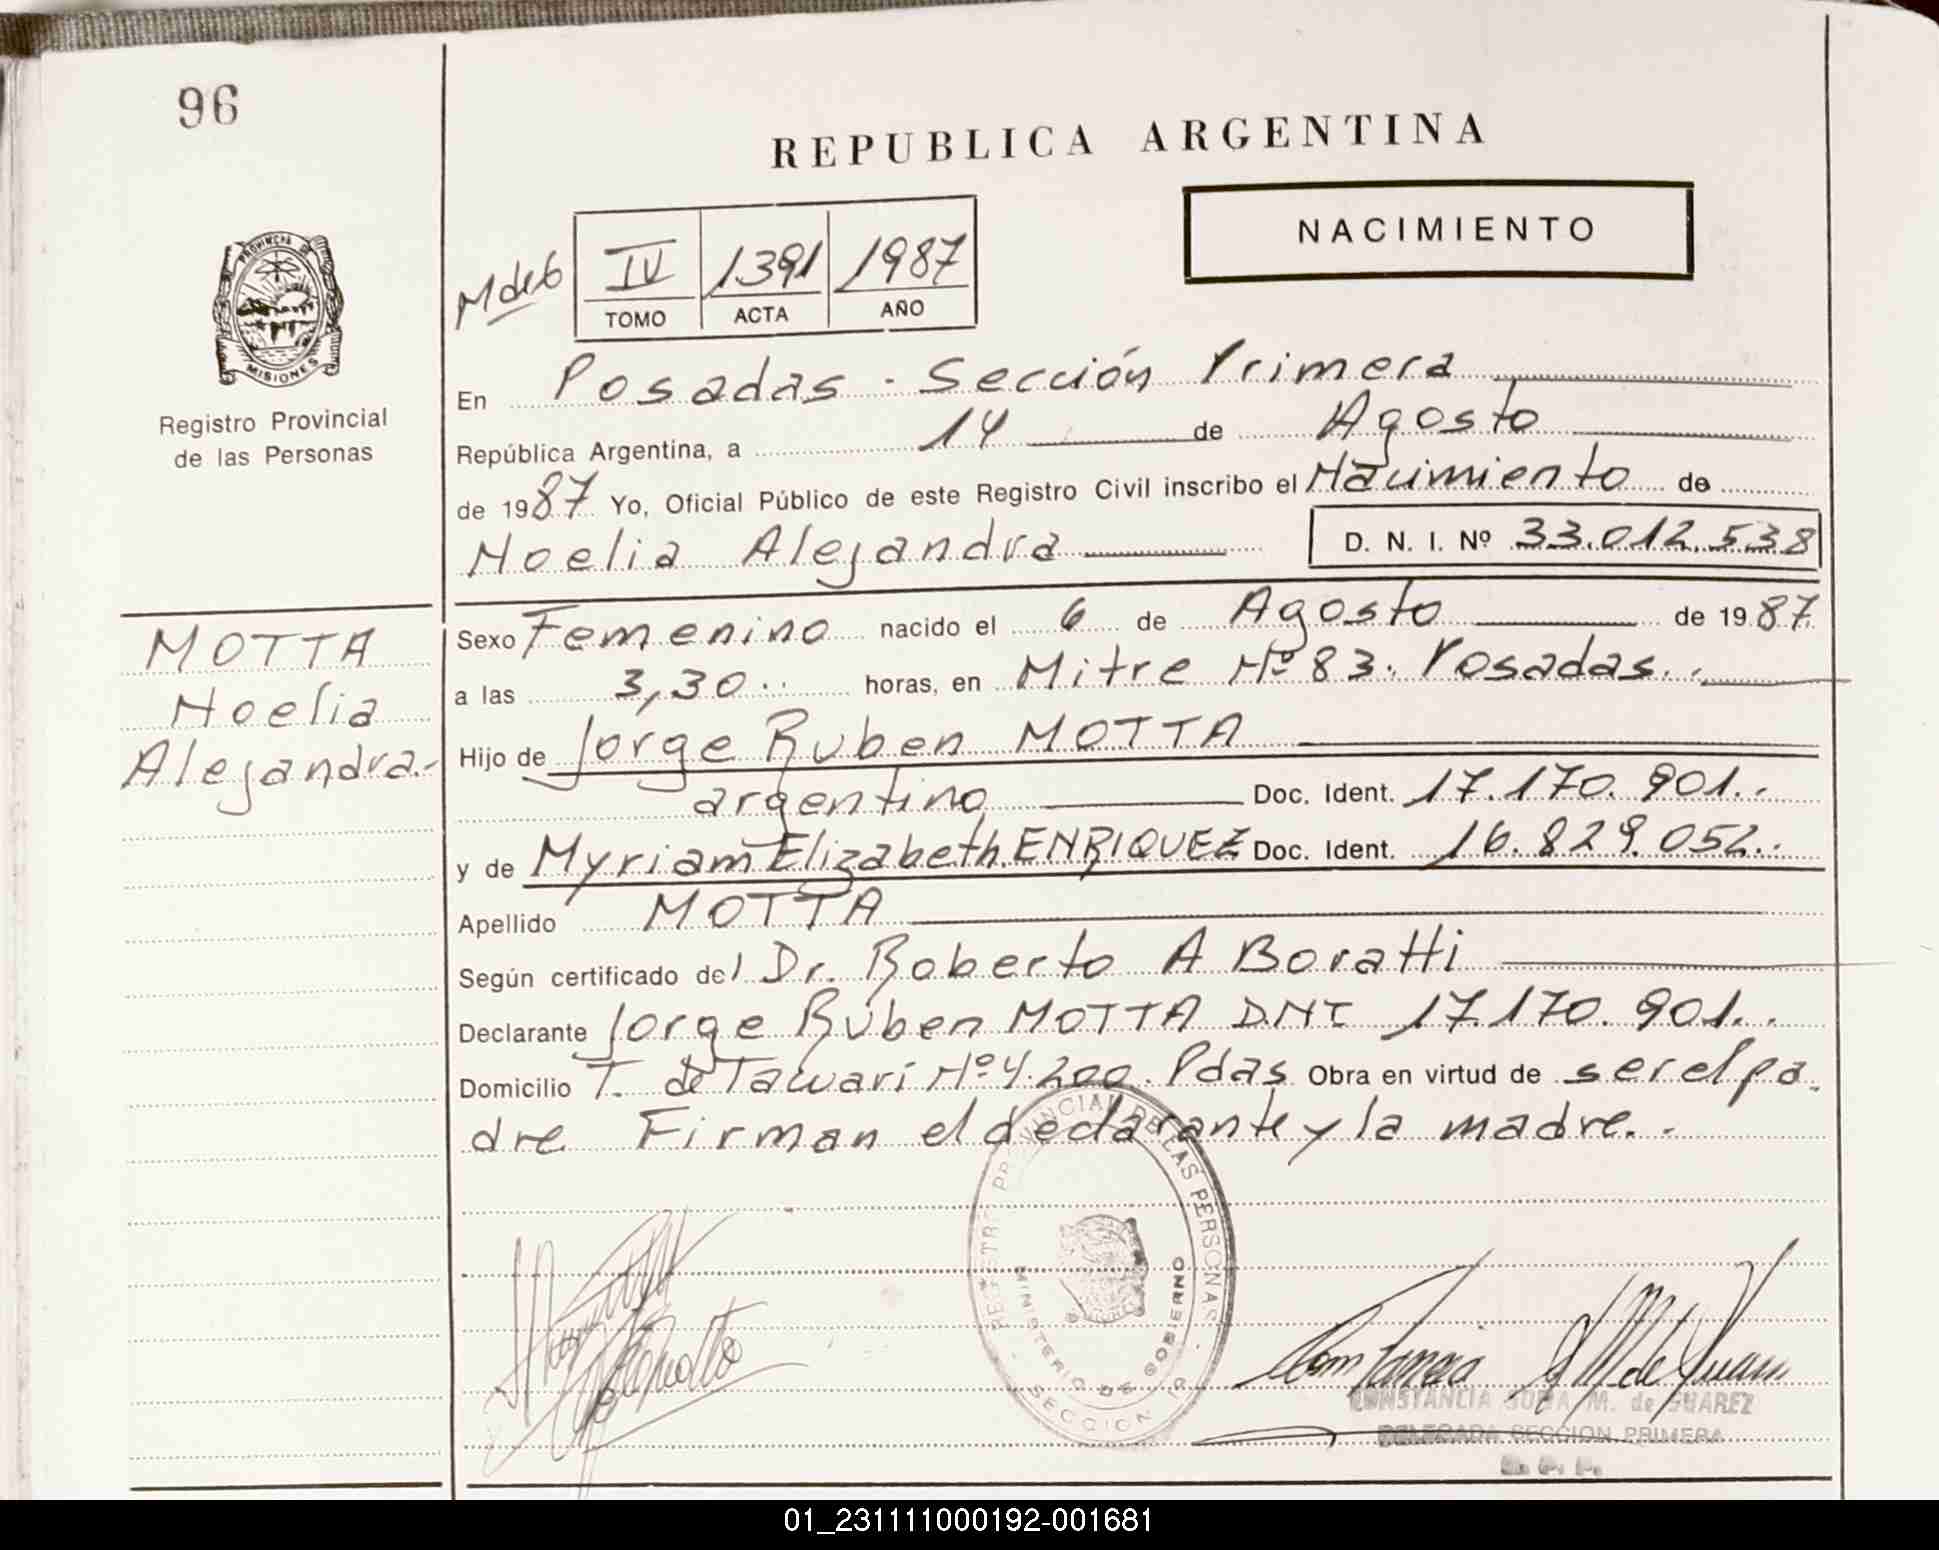 96
REPUBLICA ARGENTINA
NACIMIENTO
IV 1391 1987
TOMO ACTA AÑO
PROVINCIA DE MISIONES
Registro Provincial
de las Personas
En Posadas - Sección Primera
República Argentina, a 14 de Agosto
de 1987 Yo, Oficial Público de este Registro Civil inscribo el Nacimiento de
Noelia Alejandra D. N. I. Nº 33.012.538
MOTTA
Noelia
Alejandra.-
Sexo Femenino nacido el 6 de Agosto de 1987.
a las 3,30.. horas, en Mitre Nº 83. Posadas..
Hijo de Jorge Ruben MOTTA
argentino Doc. Ident. 17.170.901..
y de Myriam Elizabeth ENRIQUEZ Doc. Ident. 16.829.052..
Apellido MOTTA
Según certificado del Dr. Roberto A Boratti
Declarante Jorge Ruben MOTTA DNI 17.170.901..
Domicilio T. de Tacuarí Nº 4.200. Pdas Obra en virtud de ser el pa
dre Firman el declarante y la madre..
REGISTRO PROVINCIAL DE LAS PERSONAS
MINISTERIO DE GOBIERNO
SECCION 1a
CONSTANCIA SOFIA M. de SUAREZ
DELEGADA SECCION PRIMERA
01_231111000192-001681